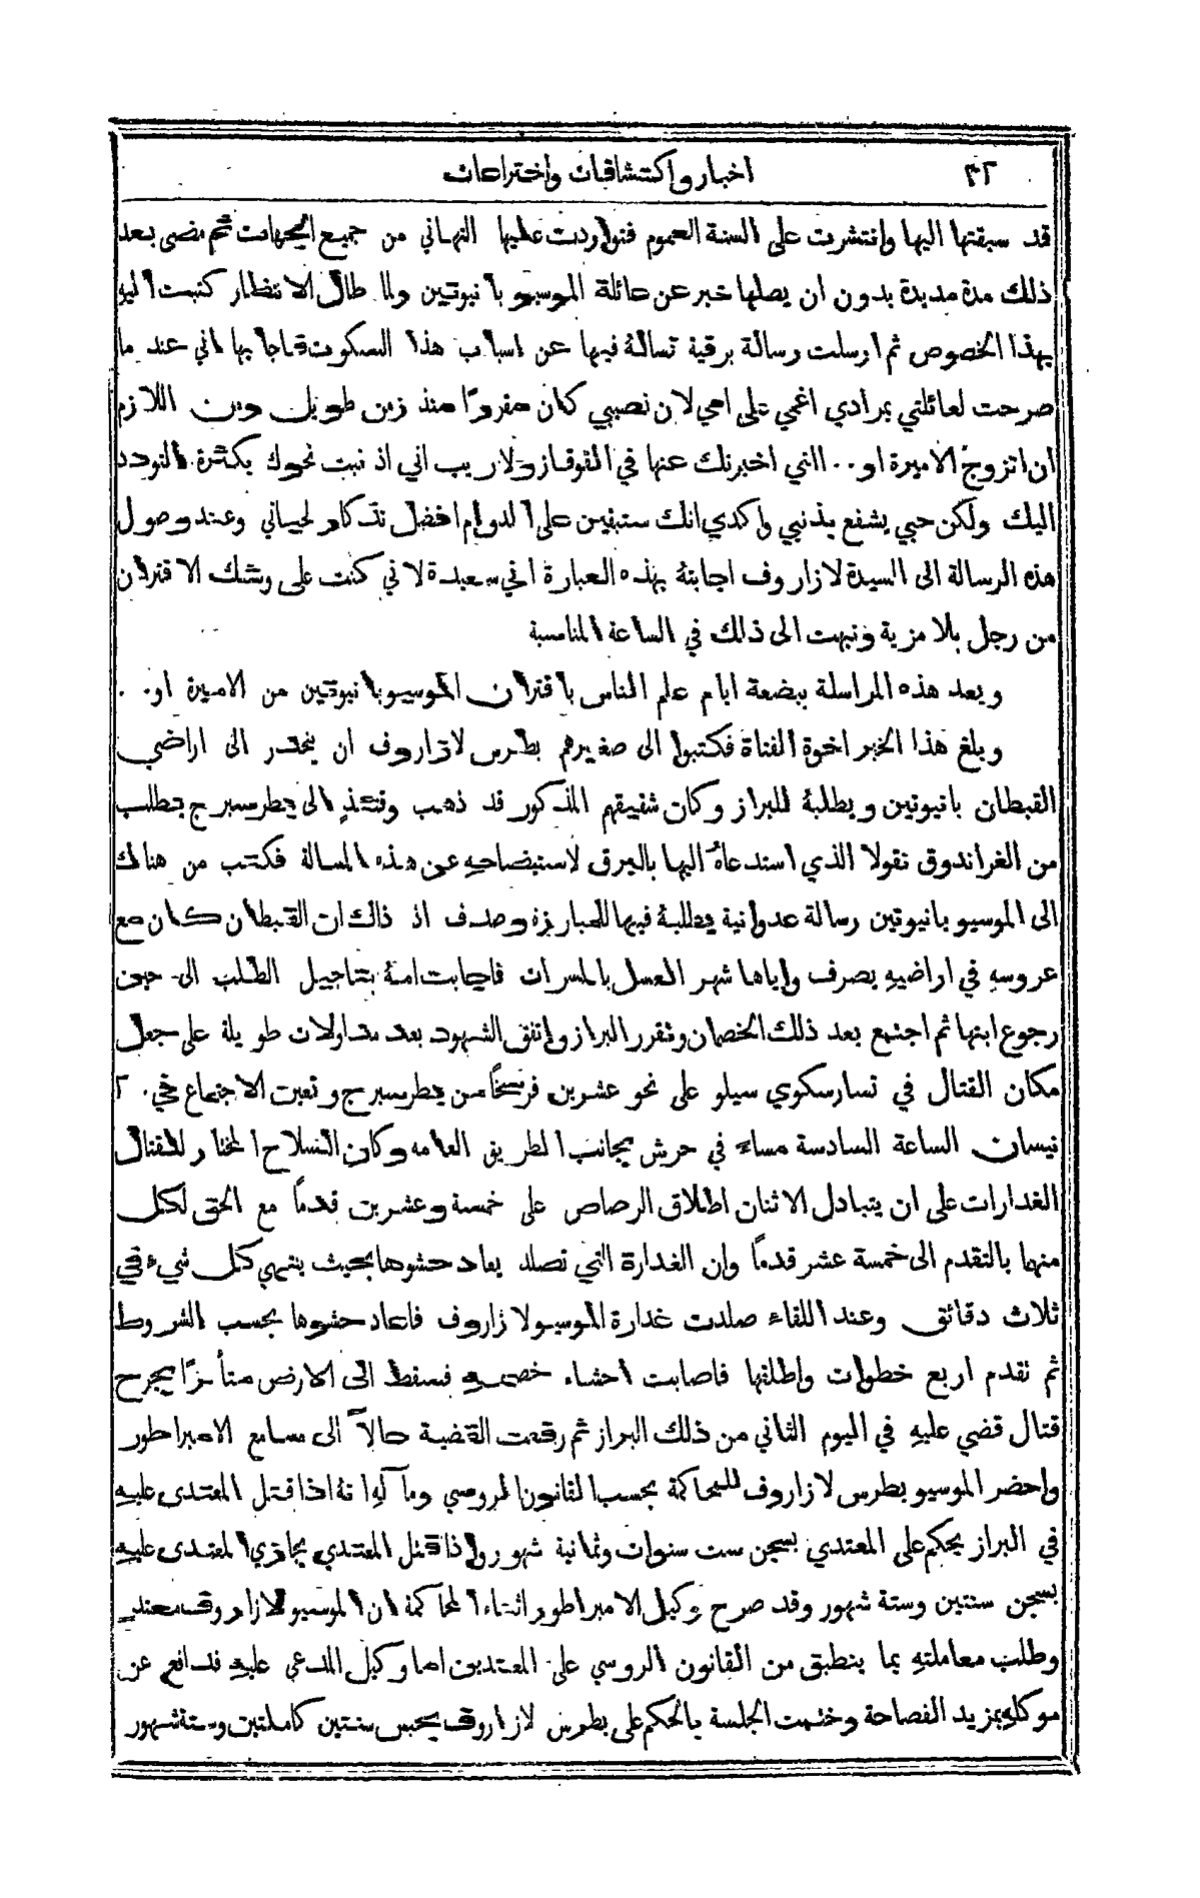 ٣٢ اخبار واكتشافات واختراعات
قد سبقتها اليها وانتشرت على السنة العموم فتواردت عليها التهاني من جميع الجهات ثم مضى بعد
ذلك مدة مديدة بدون ان يصلها خبر عن عائلة الموسيو بانيوتين ولما طال الانتظار كتبت اليه
بهذا الخصوص ثم ارسلت رسالة برقية تسالهُ فيها عن اسباب هذا السكوت فاجابها اني عند ما
صرحت لعائلتي بمرادي اغمي على امي لان نصيبي كان مقررًا منذ زمن طويل ومن اللازم
ان اتزوج الاميرة او . . التي اخبرتك عنها في القوقاز ولا ريب اني اذ نبت نحوك بكثرة التودد
اليك ولكن حبي يشفع بذنبي واكدي انك ستبقين على الدوام افضل تذكار لحياتي وعند وصول
هذه الرسالة الى السيدة لازاروف اجابتهُ بهذه العبارة اني سعيدة لاني كنت على وشك الاقتران
من رجل بلا مزية ونبهت الى ذلك في الساعة المناسبة
وبعد هذه المراسلة ببضعة ايام علم الناس باقتران الموسيو بانيوتين من الاميرة او . .
وبلغ هذا الخبر اخوة الفتاة فكتبوا الى صغيرهم بطرس لازاروف ان يتحدر الى اراضي
القبطان بانيوتين ويطلبهُ للبراز وكان شقيقهم المذكور قد ذهب وقتئذٍ الى بطرسبرج بطلب
من الغراندوق نقولا الذي استدعاهُ اليها بالبرق لاستيضاحهِ عن هذه المسالة فكتب من هناك
الى الموسيو بانيوتين رسالة عدوانية يطلبهُ فيها للمبارزة وصدف اذ ذاك ان القبطان كان مع
عروسهِ في اراضيهِ يصرف واياها شهر العسل بالمسرات فاجابت امهُ بتاجيل الطلب الى حين
رجوع ابنها ثم اجتمع بعد ذلك الخصمان وتقرر البراز واتفق الشهود بعد مداولات طويلة على جعل
مكان القتال في تسارسكوي سيلو على نحو عشرين فرسخًا من بطرسبرج وتعين الاجتماع في ٢
نيسان الساعة السادسة مساءً في حرش بجانب الطريق العامه وكان السلاح المختار للقتال
الغدارات على ان يتبادل الاثنان اطلاق الرصاص على خمسة وعشرين قدمًا مع الحق لكل
منهما بالتقدم الى خمسة عشر قدمًا وان الغدارة التي تصلد يعاد حشوها بحيث ينتهي كل شيء في
ثلاث دقائق وعند اللقاء صلدت غدارة الموسيو لازاروف فاعاد حشوها بحسب الشروط
ثم تقدم اربع خطوات واطلقها فاصابت احشاء خصمهِ فسقط الى الارض متأثرًا بجرح
قتال قضي عليهِ في اليوم الثاني من ذلك البراز ثم رفعت القضية حالاً الى مسامع الامبراطور
واحضر الموسيو بطرس لازاروف للمحاكمة بحسب القانون الروسي ومآلهُ انهُ اذا قتل المعتدى عليهِ
في البراز يحكم على المعتدي بسجن ست سنوات وثمانية شهور واذا قتل المعتدي يجازي المعتدى عليهِ
بسجن سنتين وستة شهور وقد صرح وكيل الامبراطور اثناء المحاكمة ان الموسيو لازاروف معتدٍ
وطلب معاملتهِ بما ينطبق من القانون الروسي على المعتدين اما وكيل المدعي عليهِ فدافع عن
موكلهِ بمزيد الفصاحة وختمت الجلسة بالحكم على بطرس لازاروف بحبس سنتين كاملتين وستة شهور